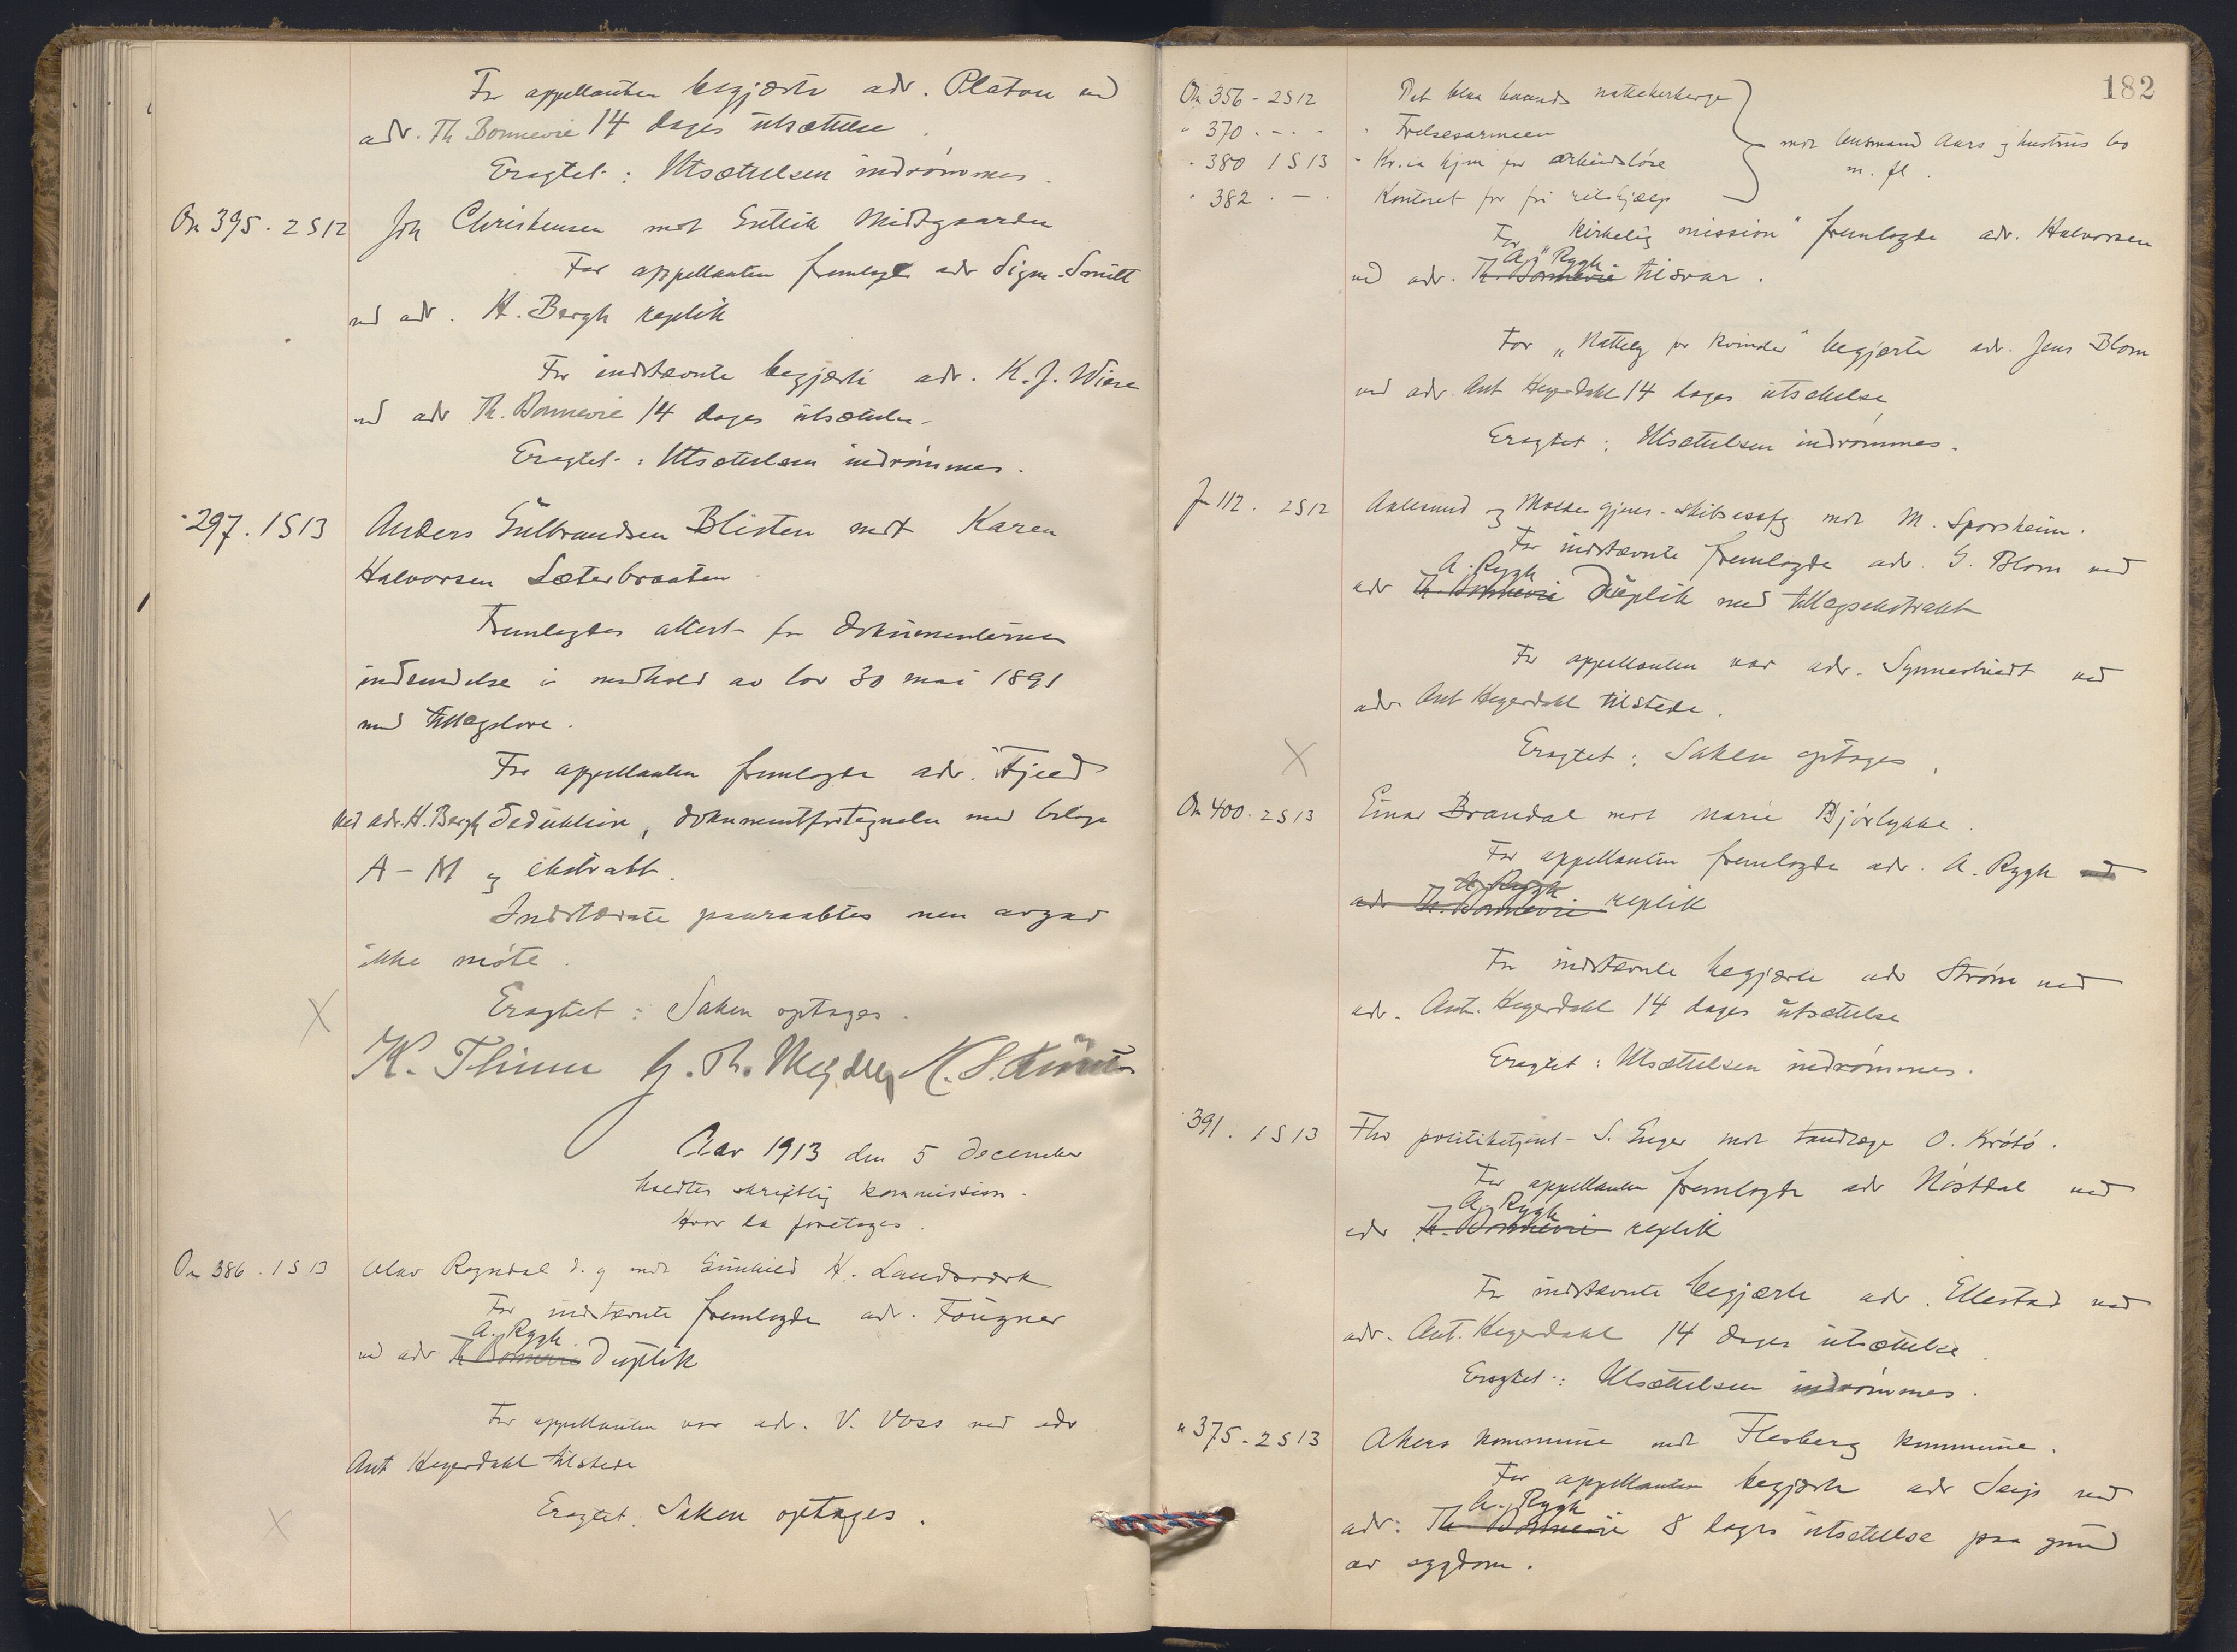 For appellanten begjærte adv. Platou ved
adv. Th Bonnevie 14 dages utsættelse.
Eragtet: Utsættelsen indrømmes.
On 395. 2 S 12 Joh Christensen mot Gullik Midtgaarden
For appellanten fremlagde adv Sigm. Smitt
ved adv. H. Bergh replik
For indstævnte begjærte adv. K. J. Wiese
ved adv Th. Bonnevie 14 dages utsættelse
Eragtet: Utsættelsen indrømmes.
" 297. 1 S 13 Anders Gulbrandsen Blisten mot Karen
Halvorsen Sæterbraaten.
Fremlagdes attest for dokumenternes
indsendelse i medhold av lov 30 mai 1891
med tillægslove.
For appellanten fremlagde adv. Fjeld
ved adv. H. Bergh deduktion, dokumentfortegnelse med bilage
A – M og ekstrakt.
Indstævnte paaraabtes men avgav
ikke møte.
X Eragtet: Saken optages.
K. Thinn
Aar 1913 den 5 december
holdtes skriftlig kommission.
Hvor da foretoges.
On 386. 1 S 13 Olav Rogndal d. y mot Gunhild H. Landsverk
For indstævnte fremlagde adv. Fougner
A. Rygh
ved adv Th Bonnevie duplik
For appellanten var adv. V. Voss ved adv
Ant Hegerdahl tilstede
X Eragtet: Saken optages.
182
On 356 – 2 S 12 Det blaa baands natteherberge
" 370 . – . Frelsesarmeen
" 380 1 S 13 Kr.ia hjem for arbeidsløse
mot lensmand Aars og hustrus bo
m. fl.
" 382 . – . Kontoret for fri retshjælp
For "Kirkelig mission" fremlagde adv. Halvorsen
A. Rygh
ved adv. Th. Bonnevie tilsvar.
For "Nattely for kvinder" begjærte adv. Jens Blom
ved adv. Ant Hegerdahl 14 dages utsættelse
Eragtet: Utsættelsen indrømmes.
J 112. 2 S 12 Aalesund og Molde gjens. skibsassfg mot M. Sporsheim.
For indstævnte fremlagde adv. G. Blom ved
A. Rygh
adv Th. Bonnevie duplik med tillægsekstrakt
For appellanten var adv. Synnestvedt ved
adv Ant Hegerdahl tilstede.
X Eragtet: Saken optages.
On 400. 2 S 13 Einar Brandal mot Marie Bjørlykke.
For appellanten fremlagde adv. A. Rygh ved
A. Rygh
adv Th. Bonnevie replik
For indstævnte begjærte adv Strøm ved
adv. Ant. Hegerdahl 14 dages utsættelse
Eragtet: Utsættelsen indrømmes.
" 391. 1 S 13 Fhv politibetjent S. Enger mot tandlæge O. Krótó.
For appellanten fremlagde adv Nøstdal ved
A. Rygh
adv Th. Bonnevie replik
For indstævnte begjærte adv. Ellestad ved
adv. Ant. Hegerdahl 14 dages utsættelse.
Eragtet: Utsættelsen indrømmes.
" 375. 2 S 13 Akers kommune mot Flesberg kommune.
For appellanten begjærte adv Seip ved
A. Rygh
adv: Th. Bonnevie 8 dages utsættelse paa grund
av sygdom.